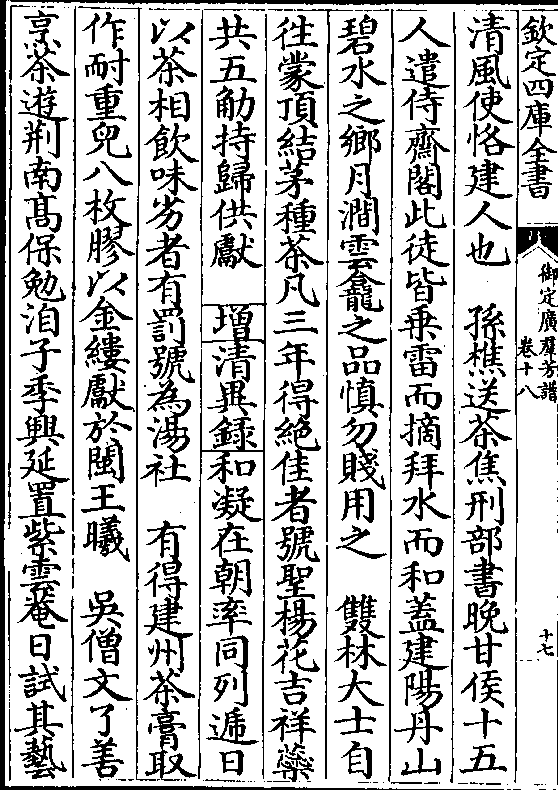 欽定四庫全書
御定廣羣芳譜
卷十八
十七
清風使恪建人也　孫樵送茶焦刑部書晚甘侯十五
人遣侍齋閣此徒皆乗雷而摘拜水而和蓋建陽丹山
碧水之鄉月澗雲龕之品慎勿賤用之　雙林大士自
徃蒙頂結茅種茶凡三年得絶佳者號聖楊花吉祥蘂
共五觔持歸供獻　增清異錄和凝在朝率同列逓日
以茶相飲味劣者有罰號為湯社　有得建州茶膏取
作耐重兒八枚膠以金縷獻於閩王曦　吳僧文了善
烹茶遊荆南髙保勉洎子季興延置紫雲菴日試其藝